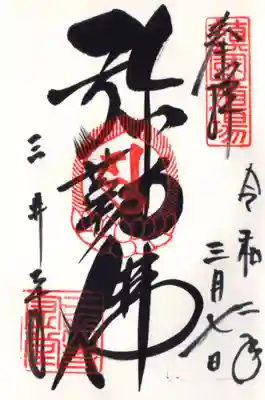 奉拝
令和二年
三月七日
弥勒佛
三井寺